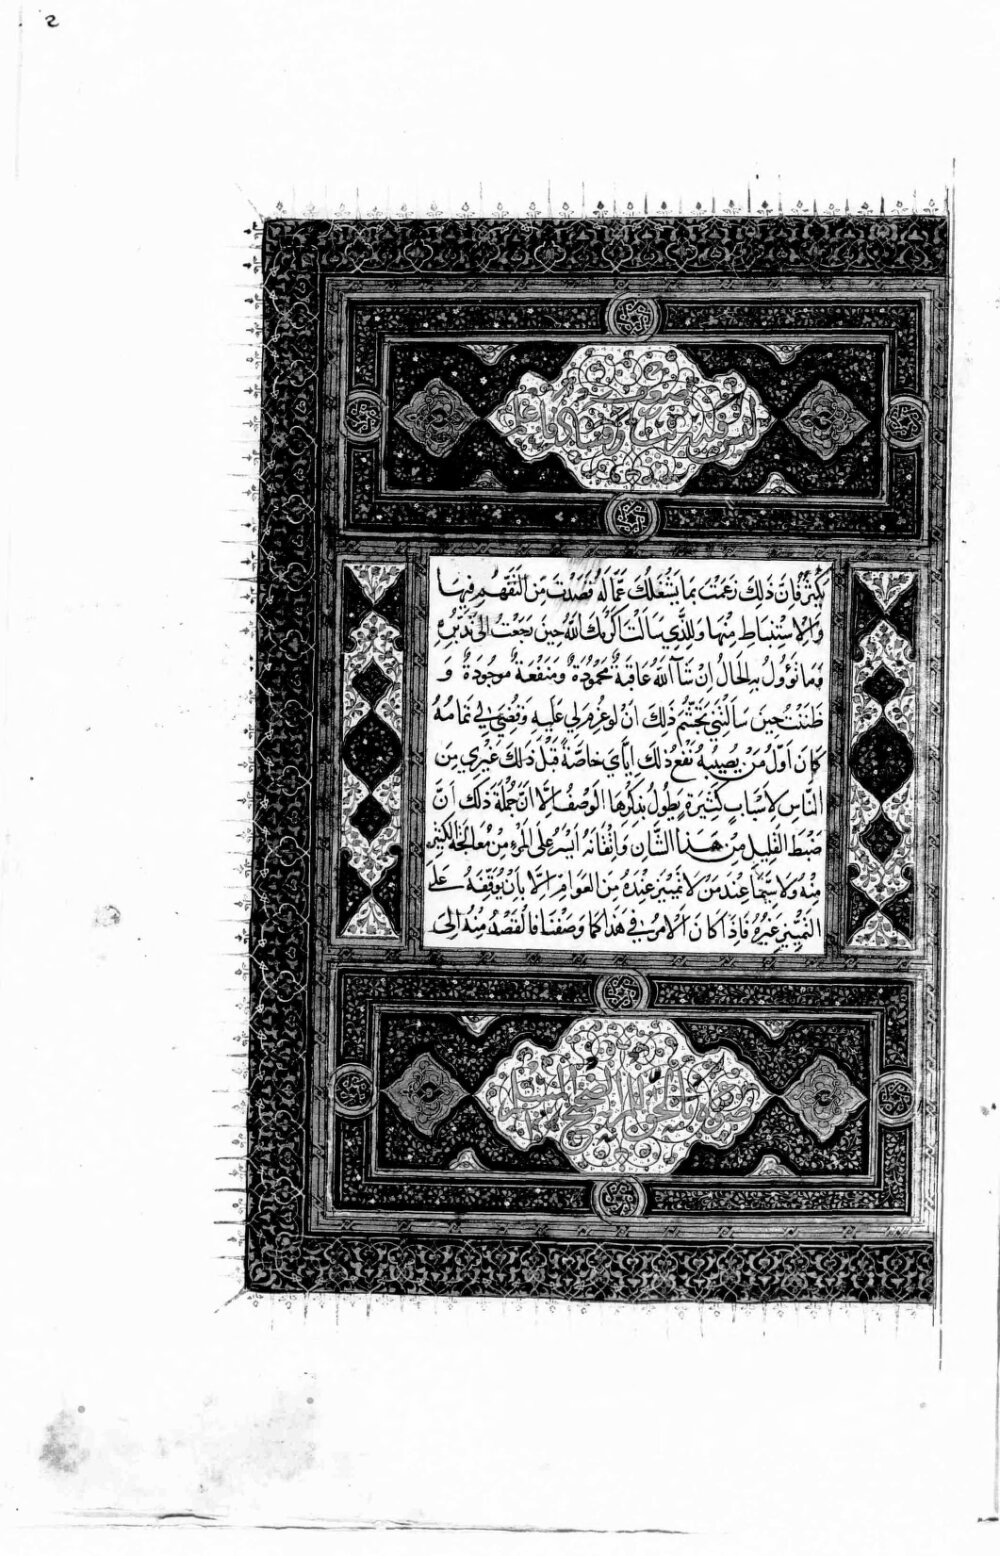 يكثر فإن ذلك زعمت بما يشغلك عمّا له قصدت من التفهم فيها
والاستنباط منها وللذي سالت اكرمك الله حين رجعت الى تدبره
وما تؤول به الحال ان شآ الله عاقبةٌ محمودةٌ ومنفعةٌ موجودةٌ و
ظننت حين سالتني تجشم ذلك ان لو عزم لي عليه وقضي لي تمامه
كان اوّل من يصيبه نفع ذلك إيّاي خاصّةً قبل ذلك غيري من
الناس لأسبابٍ كثيرةٍ يطول بذكرها الوصف إلّا انّ جملة ذلك أنّ
ضبط القليل من هذا الشان وإتقانه ايسر على المرء من معالجة الكثير
منه ولا سيّما عند من لا تمييز عنده من العوام إلّا بأن يوقفه على
التمييز غيره فاذا كان الامر في هذا كما وصفنا فالقصد منه إلى
الصحيح